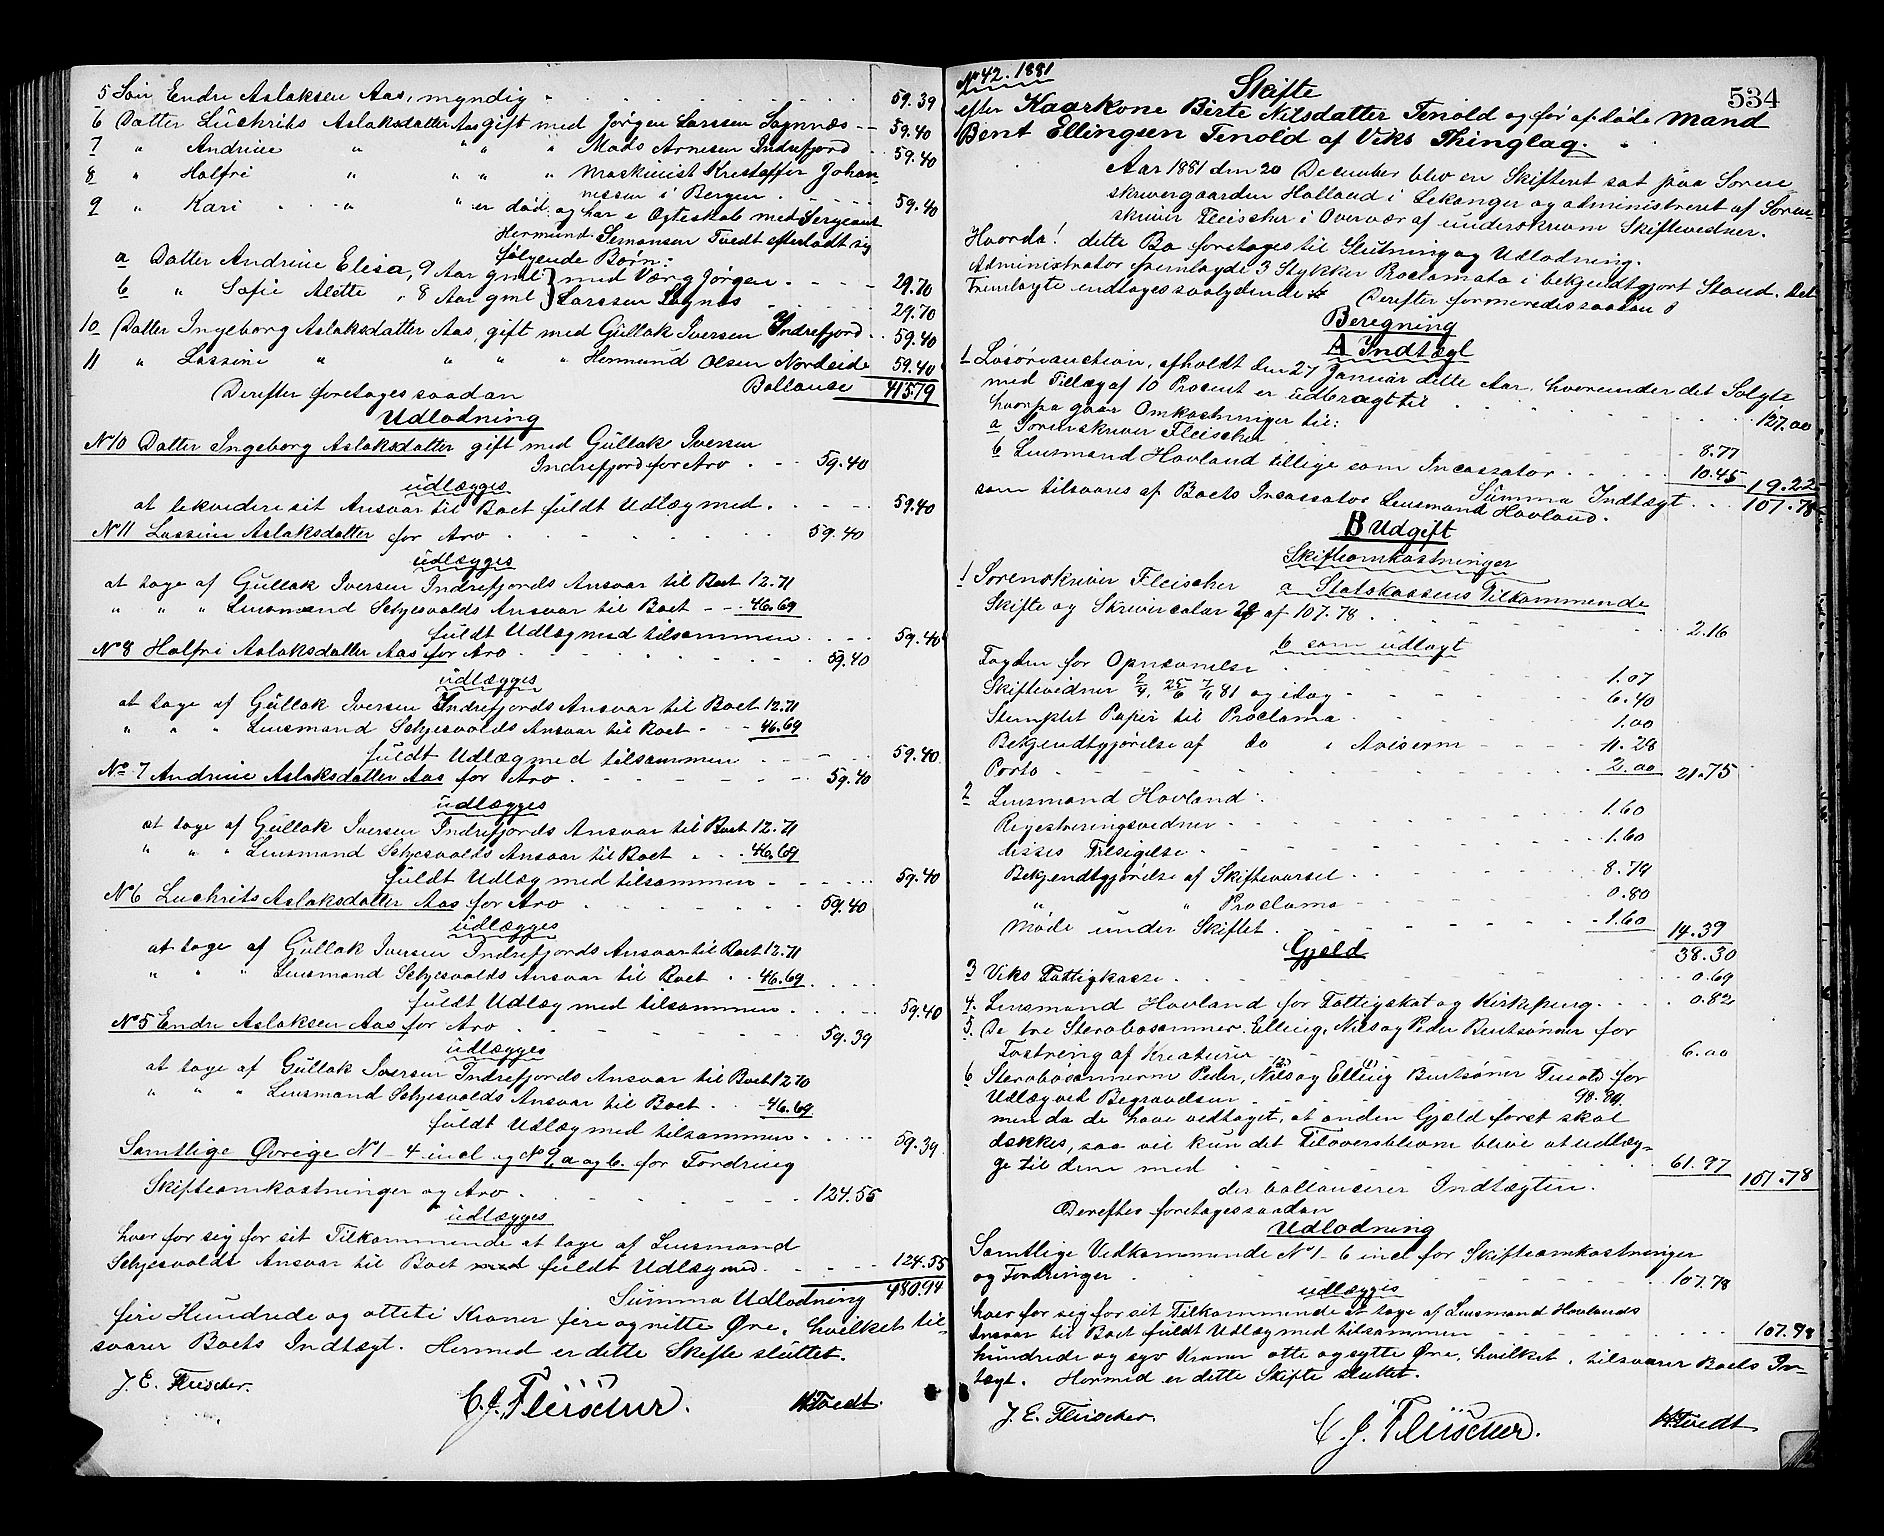 5 Søn Endre Aslaksen Aas, myndig 59.39
6 Datter Luchrits Aslaksdatter Aas gift med Jørgen Larssen Sognnæs 59.40
7 " Andrine " " " " Mads Arnesen Indrefjord 59.40
8 " Halfri " " " " Maskinist Kristoffer Johan-
nessen i Bergen 59.40
9 " Kari " " er død og har i Ægteskab med Sergeant
Hermund Simonsen Tvedt efterladt sig
følgende Børn:
a Datter Andrine Elisa, 9 Aar gml } med Værg Jørgen 29.70
b " Sofie Alette, 8 Aar gml } Larssen Sognæs 29.70
10 Datter Ingeborg Aslaksdatter Aas, gift med Gullak Iversen Indrefjord 59.40
11 " Lassine " " " " Hermund Olsen Nordeide 59.40
Derefter foretages saadan Ballance 415.79
Udlodning
No 10 Datter Ingeborg Aslaksdatter gift med Gullak Iversen
Indrefjord for Arv 59.40
udlægges
at lekvidere sit Ansvar til Boet fuldt Udlæg med 59.40
No 11 Lassine Aslaksdatter for Arv 59.40
udlægges
at tage af Gullak Iversen Indrefjords Ansvar til Boet 12.71
" " " Lensmand Schjesvolds Ansvar til Boet 46.69
fuldt Udlæg med tilsammen 59.40
No 8 Halfri Aslaksdatter Aas for Arv 59.40
udlægges
at tage af Gullak Iversen Indrefjords Ansvar til Boet 12.71
" " " Lensmand Schjesvolds Ansvar til Boet 46.69
fuldt Udlæg med tilsammen 59.40
No 7 Andrine Aslaksdatter Aas for Arv 59.40
udlægges
at tage af Gullak Iversen Indrefjords Ansvar til Boet 12.71
" " " Lensmand Schjesvolds Ansvar til Boet 46.69
fuldt Udlæg med tilsammen 59.40
No 6 Luchrits Aslaksdatter Aas for Arv 59.40
udlægges
at tage af Gullak Iversen Indrefjords Ansvar til Boet 12.71
" " " Lensmand Schjesvolds Ansvar til Boet 46.69
fuldt Udlæg med tilsammen 59.40
No 5 Endre Aslaksen Aas for Arv 59.39
udlægges
at tage af Gullak Iversen Indrefjords Ansvar til Boet 12.70
" " " Lensmand Schjesvolds Ansvar til Boet 46.69
fuldt Udlæg med tilsammen 59.39
Samtlige Øvrige No 1 - 4 incl og No 9, a og b. for Fordring
Skifteomkostninger og Arv 124.55
udlægges
hver for sig for sit Tilkommende at tage af Lensmand
Schjesvolds Ansvar til Boet med fuldt Udlæg med 124.55
Summa Udlodning 480.94
fire Hundrede og otteti Kroner fire og nitte Øre, hvilket til-
svarer Boets Indtægt. Hermed er dette Skifte sluttet.
J. E. Fleischer. C. J. Fleischer. H. Tvedt
No 42. 1881 534
Skifte
efter Kaarkone Birte Nilsdatter Tenold og før afdøde Mand
Bent Ellingsen Tenold af Viks Thinglag.
Aar 1881 den 20 December blev en Skifteret sat paa Soren-
skrivergaarden Halland i Lekanger og administreret af Soren-
skriver Fleischer i Overvær af underskrevne Skiftevidner.
Hvorda! dette Bo foretages til Slutning og Udlodning.
Administrator fremlagde 3 Stykker Proclamata i bekjendtgjort Stand. Det
Fremlagte indtages saalydende: Derefter formeredes saadan
Beregning
A Indtægt
1 Løsøreauction, afholdt den 27 Januar dette Aar, hvorunder det Solgte
med Tillæg af 10 Procent er udbragt til 127.00
hvorpaa gaar Omkostninger til:
a Sorenskriver Fleischer 8.77
b Lensmand Hovland tillige som Incassator 10.45 19.22
Summa Indtægt 107.78
som tilsvares af Boets Incassator Lensmand Hovland.
B Udgift
Skifteomkostninger
1 Sorenskriver Fleischer a Statskassens Tilkommende
Skifte og Skriversalær 2% af 107.78 2.16
b som udlagt
Fogden for Opnævnelse 1.07
Skiftevidner 2/4, 25/6 7/11 81 og idag 6.40
Stemplet Papir til Proclama 1.00
Bekjendtgjørelse af do i Aviserne 11.28
Porto 2.00 21.75
2 Lensmand Hovland:
Registreringsvidner 1.60
disses Tilsigelse 1.60
Bekjendtgjørelse af Skiftevarsel 8.79
" " Proclama 0.80
Møde under Skiftet 1.60 14.39
Gjeld 38.30
3 Viks Fattigkasse 0.69
4. Lensmand Hovland for Fattigskat og Kirkepeng 0.82
5. De tre Stervbosønner Elling, Nils og Peder Bentsønner for
Fostring af Kreaturer 6.00
6 Stervbosønnerne Peder, Nils og Elling Bentsøner Tenold for
Udlæg ved Begravelsen
men da de have vedtaget, at anden Gjeld først skal
dækkes, saa vil kun det Tiloversblevne blive at udlæg-
ge til dem med 61.97 107.78
der ballancerer Indtægten.
Derefter foretages saadan
Udlodning
Samtlige Vedkommende No 1 - 6 incl for Skifteomkostninger
og Fordringer 107.78
udlægges
hver for sig for sit Tilkommende at tage af Lensmand Hovlands
Ansvar til Boet fuldt Udlæg med tilsammen 107.78
hundrede og syv Kroner otte og sytte Øre, hvilket tilsvarer Boets In-
tægt. Hermed er dette Skifte sluttet.
J. E. Fleischer. C. J. Fleischer. H. Tvedt